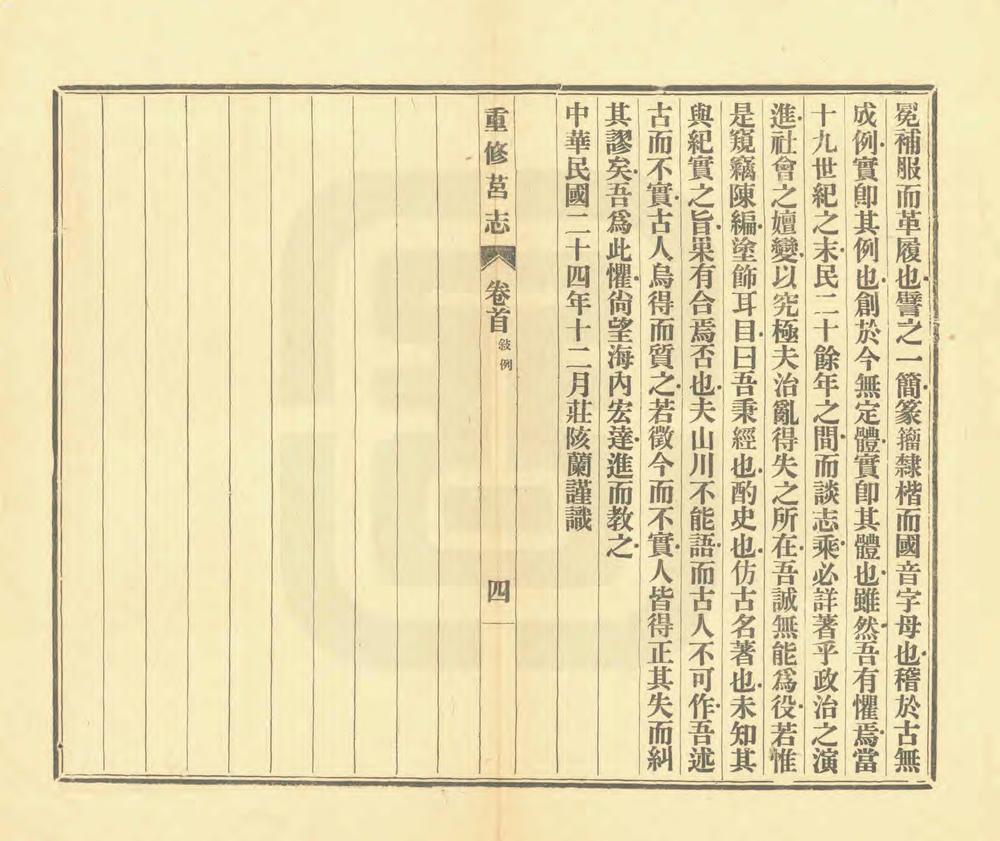 冕補服而革履也譬之一簡篆籀隸楷而國音字母也稽於古無
成例實卽其例也創於今無定體實卽其體也雖然吾有懼焉當
十九世紀之末民二十餘年之間而談志乘必詳著乎政治之演
進社會之嬗變以究極夫治亂得失之所在吾誠無能爲役若惟
是窺竊陳編塗飾耳目曰吾秉經也酌史也仿古名著也未知其
與紀實之旨果有合焉否也夫山川不能語而古人不可作吾述
古而不實古人烏得而質之若徵今而不實人皆得正其失而糾
其謬矣吾爲此懼尙望海內宏達進而教之
中華民國二十四年十二月莊陔蘭謹識
重修莒志
卷首
敍例
四